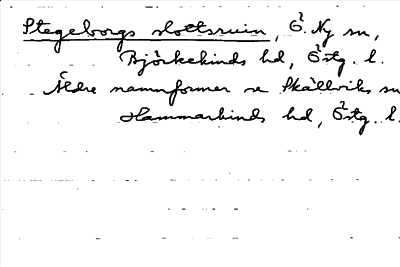 Stegeborgs slottsruin, Ö. Ny sn,
Björkekinds hd, Östg. l.
Äldre namnformer se Skällviks sn
Hammarkinds hd, Östg. l.